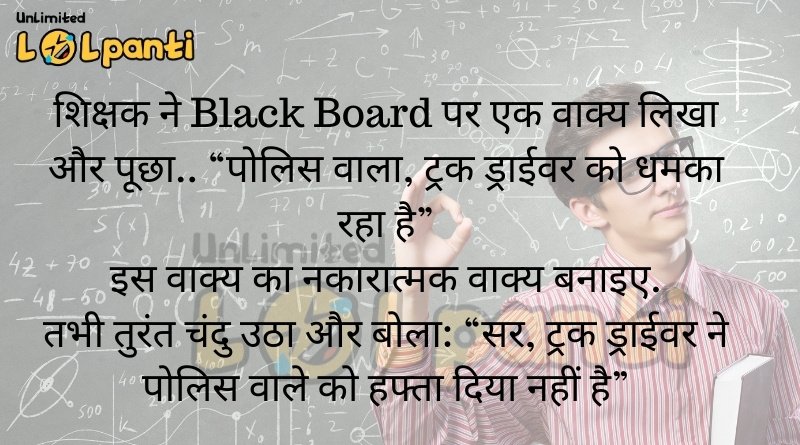 UnLimited
LOLpanti
शिक्षक ने Black Board पर एक वाक्य लिखा
और पूछा.. “पोलिस वाला, ट्रक ड्राईवर को धमका
रहा है”
इस वाक्य का नकारात्मक वाक्य बनाइए.
तभी तुरंत चंदु उठा और बोला: “सर, ट्रक ड्राईवर ने
पोलिस वाले को हफ्ता दिया नहीं है”
UnLimited
LOLpanti